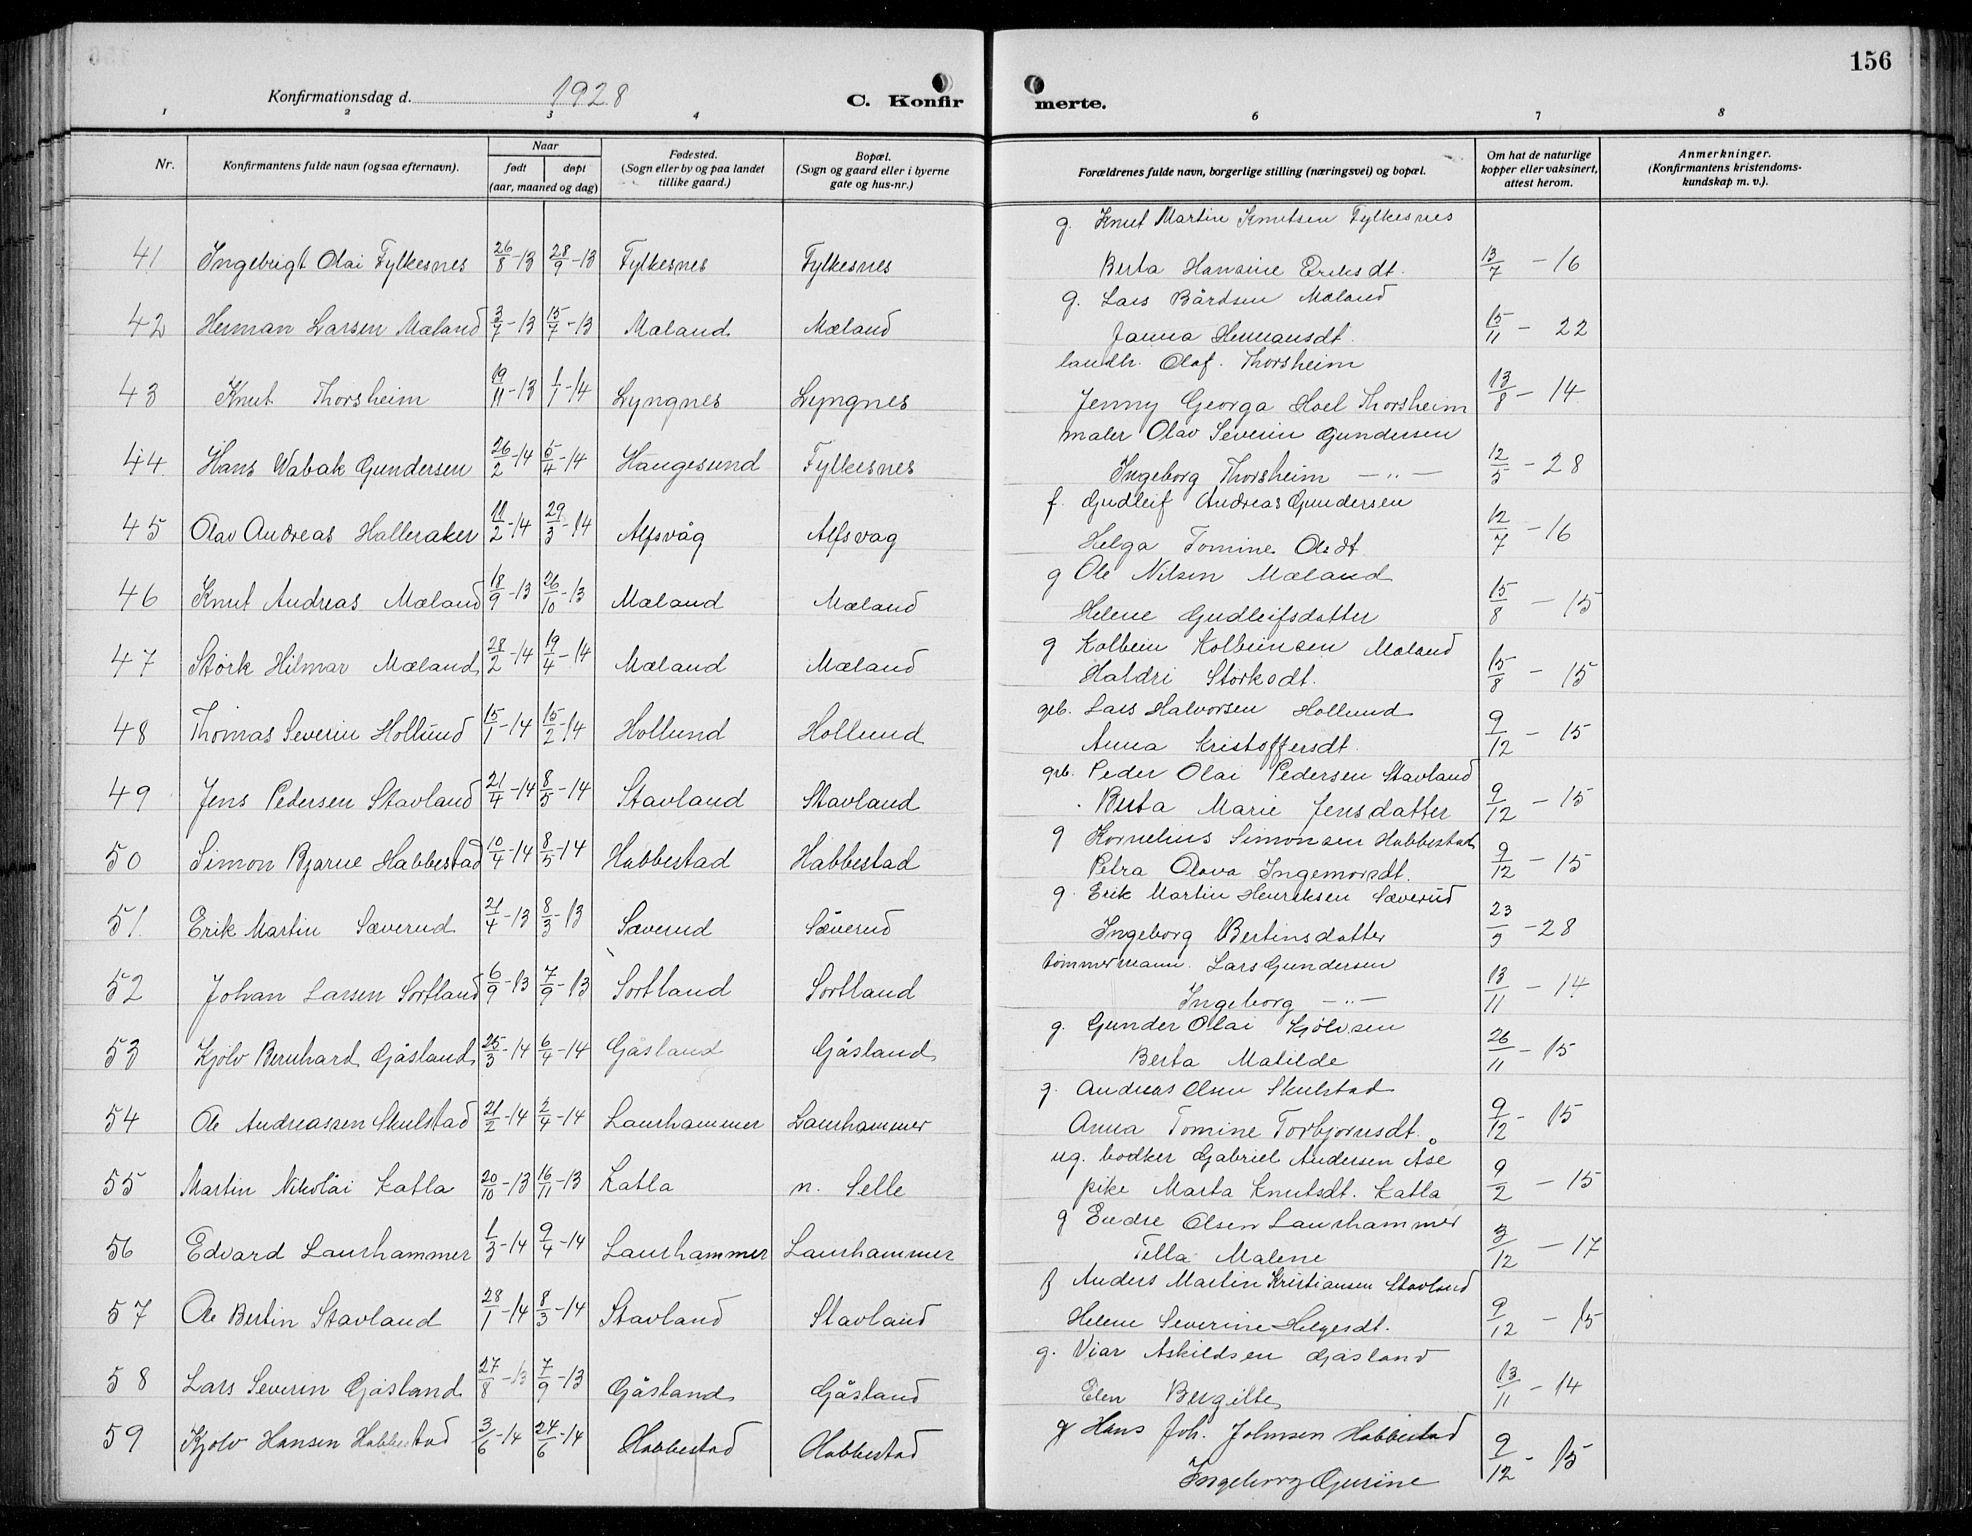 156
Konfirmationsdag d. 1928
C. Konfirmerte.
1 2 3 4 6 7 8
Nr. Konfirmantens fulde navn (ogsaa efternavn). Naar født døpt (aar, maaned og dag) Fødested. (Sogn eller by og paa landet tillike gaard.) Bopæl. (Sogn og gaard eller i byerne gate og hus-nr.) Forældrenes fulde navn, borgerlige stilling (næringsvei) og bopæl. Om hat de naturlige kopper eller vaksinert, attest herom. Anmerkninger. (Konfirmantens kristendomskundskap m. v.).
g. Knut Martin Knutsen Fylkesnes
41 Ingebrigt Olai Fylkesnes 26/8-13 28/9-13 Fylkesnes Fylkesnes Berta Hansine Eriksdt. 13/7-16
g. Lars Bårdsen Mæland
42 Herman Larsen Mæland 3/7-13 15/7-13 Mæland Mæland Janna Hermansdt. 15/11-22
landh. Olaf. Thorsheim
43 Knut Thorsheim 19/11-13 1/1-14 Lyngnes Lyngnes Jenny Georga Hoel Thorsheim 13/8-14
maler Olav Severin Gundersen
44 Hans Wabak Gundersen 26/2-14 5/4-14 Haugesund Fylkesnes Ingeborg Thorsheim -"- 12/5-28
f. Gudleif Andreas Gundersen
45 Olav Andreas Halleraker 11/2-14 29/3-14 Alfsvåg Alfsvag Helga Tomine Olsdt 12/7-16
g Ole Nilsen Mæland
46 Knut Andreas Mæland 18/9-13 26/10-13 Mæland Mæland Helene Gudleifsdatter 15/8-15
g Kolbein Kolbeinsen Mæland
47 Størk Hilmar Mæland 28/2-14 19/4-14 Mæland Mæland Haldri Størksdt. 15/8-15
grb. Lars Halvorsen Hollund
48 Thomas Severin Hollund 15/1-14 15/2-14 Hollund Hollund Anna Kristoffersdt. 9/12-15
grb. Peder Olai Pedersen Stavland
49 Jens Pedersen Stavland 21/4-14 8/5-14 Stavland Stavland Berta Marie Jensdatter 9/12-15
g Kornelius Simonsen Habbestad
50 Simon Bjarne Habbestad 10/4-14 8/5-14 Habbestad Habbestad Petra Olava Ingemorsdt. 9/12-15
g. Erik Martin Henriksen Sæverud
51. Erik Martin Sæverud 21/4-13 8/3-13 Sæverud Sæverud Ingeborg Bertinsdatter 23/5-28
tømmermann. Lars Gundersen
52 Johan Larsen Sortland 6/9-13 7/9-13 Sortland Sortland Ingeborg -"- 13/11-14
g. Gunder Olai Kjølvsen
53 Kjølv Bernhard Gåsland 25/3-14 6/4-14 Gåsland Gåsland Berta Matilde 26/11-15
g. Andreas Olsen Skulstad
54 Ole Andreassen Skulstad 21/2-14 2/4-14 Laurhammer Laurhammer Anna Tomine Torbjørnsdt. 9/12-15
ug. bødker Gabriel Andersen Åse
55 Martin Nikolai Katla 20/10-13 16/11-13 Katla n. Selle pike Marta Knutsdt. Katla 9/2-15
g Endre Olsen Laurhammer
56 Edvard Laurhammer 1/3-14 9/4-14 Laurhammer Laurhammer Tella Malene 3/12-17
f Anders Martin Kristiansen Stavland
57 Ole Bertin Stavland 28/1-14 8/3-14 Stavland Stavland Helene Severine Helgesdt. 9/12-15
g. Viar Askildsen Gåsland
58 Lars Severin Gåsland 27/8-13 7/9-13 Gåsland Gåsland Elen Bergitte 13/11-14
g Hans Joh. Johnsen Habbestad
59 Kjølv Hansen Habbestad 3/6-14 24/6-14 Habbestad Habbestad Ingeborg Gurine 9/12-15